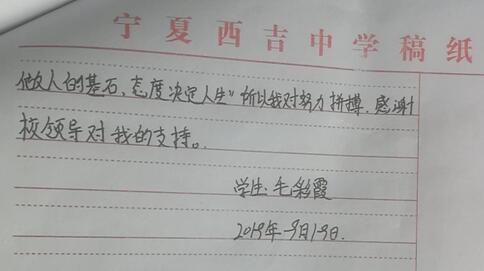 宁夏西吉中学稿纸
做人的基石，态度决定人生”所以我对努力拼搏，感谢
校领导对我的支持。
学生：毛彩霞
2019年9月19日.